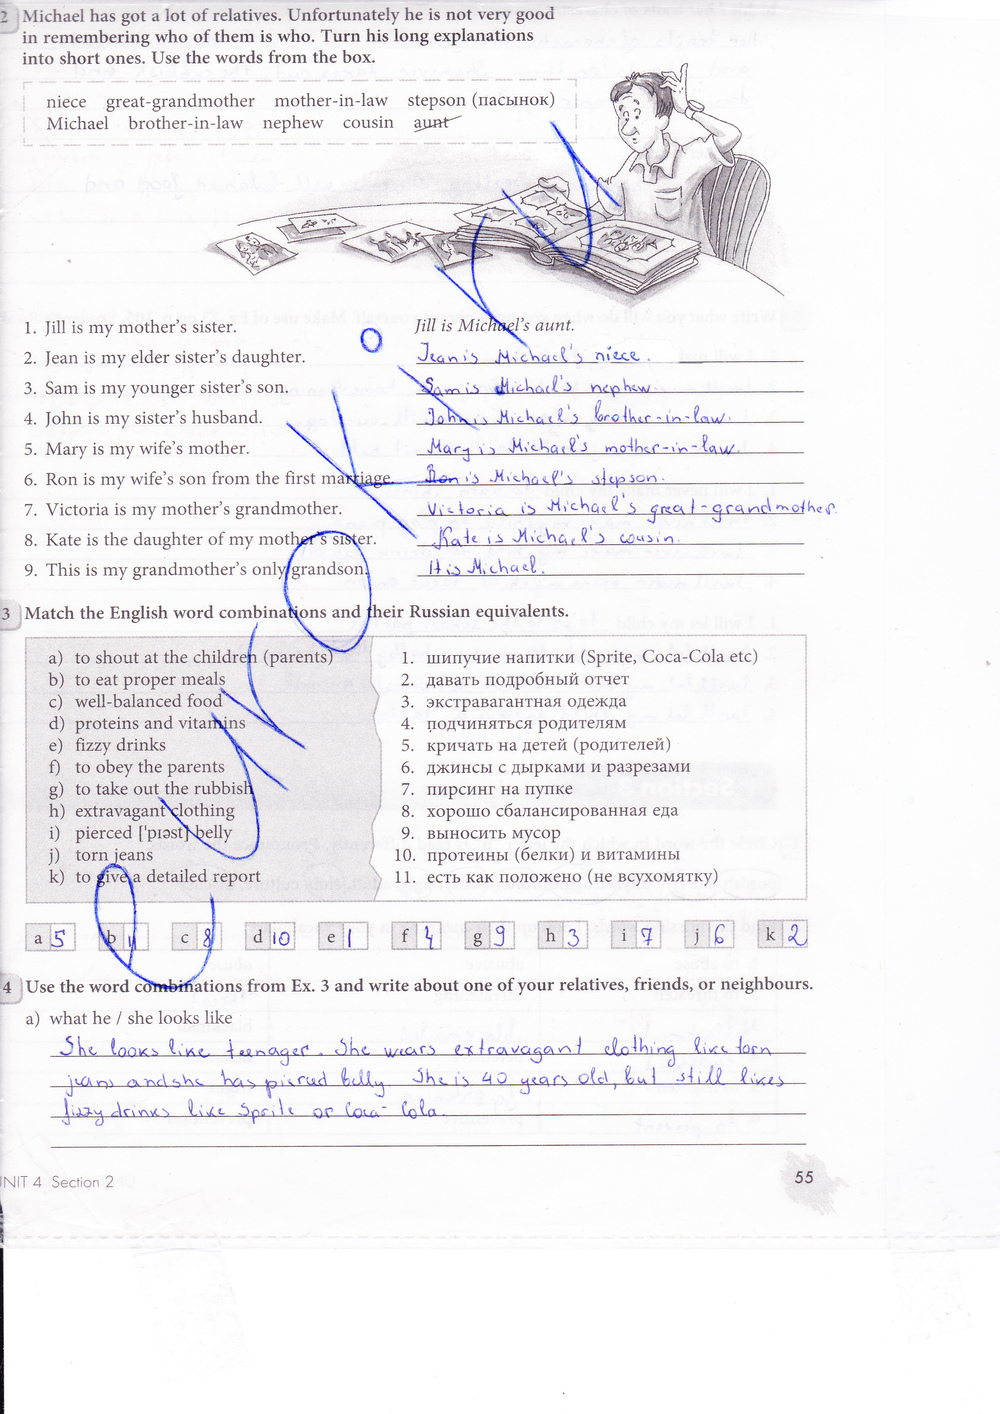 2 Michael has got a lot of relatives. Unfortunately he is not very good
in remembering who of them is who. Turn his long explanations
into short ones. Use the words from the box.
niece great-grandmother mother-in-law stepson (пасынок)
Michael brother-in-law nephew cousin aunt
1. Jill is my mother's sister. Jill is Michael's aunt.
2. Jean is my elder sister's daughter. Jean is Michael's niece.
3. Sam is my younger sister's son. Sam is Michael's nephew.
4. John is my sister's husband. John is Michael's brother-in-law.
5. Mary is my wife's mother. Mary is Michael's mother-in-law.
6. Ron is my wife's son from the first marriage. Ron is Michael's stepson.
7. Victoria is my mother's grandmother. Victoria is Michael's great-grandmother.
8. Kate is the daughter of my mother's sister. Kate is Michael's cousin.
9. This is my grandmother's only grandson. It is Michael.
3 Match the English word combinations and their Russian equivalents.
a) to shout at the children (parents)
b) to eat proper meals
c) well-balanced food
d) proteins and vitamins
e) fizzy drinks
f) to obey the parents
g) to take out the rubbish
h) extravagant clothing
i) pierced ['pɪəst] belly
j) torn jeans
k) to give a detailed report
1. шипучие напитки (Sprite, Coca-Cola etc)
2. давать подробный отчет
3. экстравагантная одежда
4. подчиняться родителям
5. кричать на детей (родителей)
6. джинсы с дырками и разрезами
7. пирсинг на пупке
8. хорошо сбалансированная еда
9. выносить мусор
10. протеины (белки) и витамины
11. есть как положено (не всухомятку)
a 5 b 11 c 8 d 10 e 1 f 4 g 9 h 3 i 7 j 6 k 2
4 Use the word combinations from Ex. 3 and write about one of your relatives, friends, or neighbours.
a) what he / she looks like
She looks like teenager. She wears extravagant clothing like torn
jeans and she has pierced belly She is 40 years old, but still likes
fizzy drinks like Sprite or Coca-Cola.
NIT 4 Section 2
55